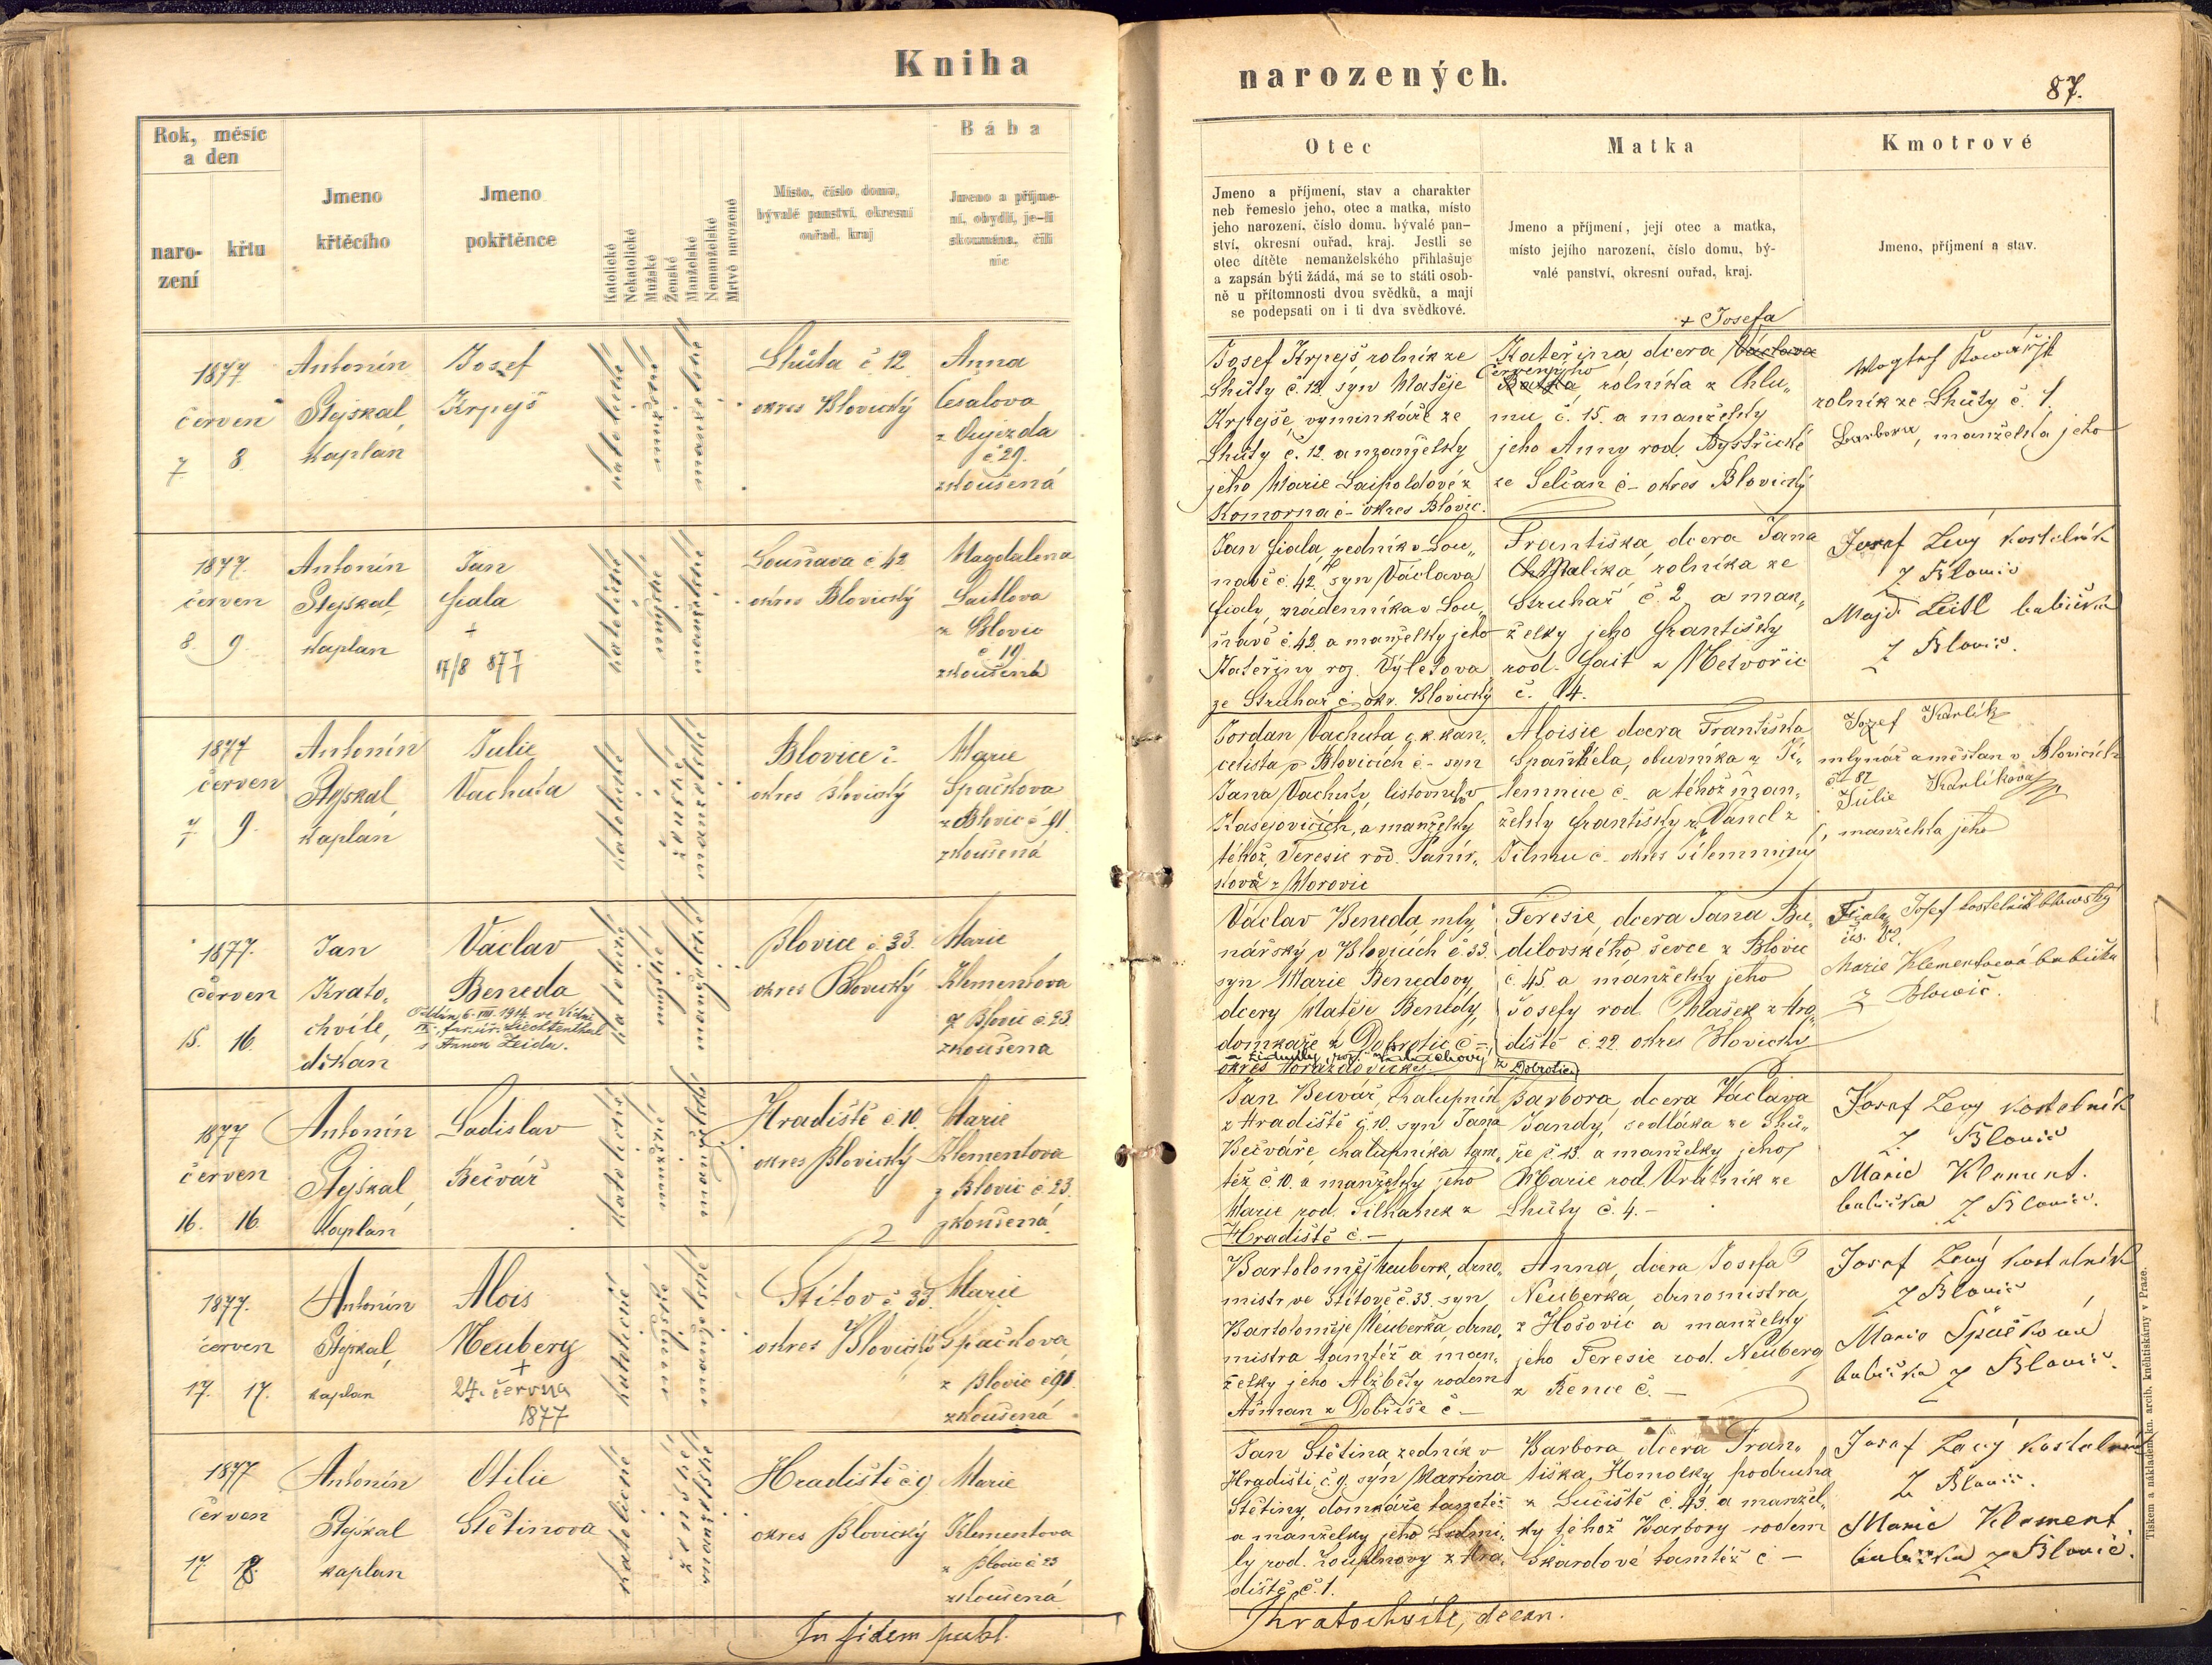 Kniha
Rok, měsíc
a den
naro-
zení
křtu
Jmeno
křtěcího
Jmeno
pokřtěnce
Katolické
Nekatolické
Mužské
Ženské
Manželské
Nemanželské
Mrtvě narozené
Místo, číslo domu,
bývalé panství, okresní
ouřad, kraj
Bába
Jmeno a příjme-
ní, obydlí, je-li
zkoumána, čili
nic
1877
červen
7. 8.
Antonín
Stejskal,
kaplan
Josef
Krpejš
katolické
mužské
manželské
Lhůta č 12
okres Blovický
Anna
Česalova
z Oujezda
č 29.
zkoušená
1877.
červen
8. 9.
Antonín
Stejskal,
kaplan
Jan
Fiala
+
17/8 877
katolické
mužské
manželské
Louňava č. 42
okres Blovický
Magdalena
Leitlova
z Blovic
č 19
zkoušená
1877
červen
7. 9.
Antonín
Stejskal,
kaplan
Julie
Vachuta
katolické
ženské
manželské
Blovice č.
okres Blovický
Marie
Spačkova
z Blovic č 91.
zkoušená
1877.
červen
15. 16.
Jan
Krato-
chvíle,
děkan
Václav
Beneda
s Annou Zeida.
katolické
mužské
manželské
Blovice č. 33.
okres Blovický
Marie
Klementova
z Blovic č. 23
zkoušena
1877
červen
16. 16.
Antonín
Stejskal,
kaplan
Ladislav
Bečvář
katolické
mužské
manželské
Hradiště č 10.
okres Blovický
Marie
Klementova
z Blovic č 23.
zkoušená
1877.
červen
17. 17.
Antonín
Stejskal,
kaplan
Alois
Neuberg
+
24. června
1877
katolické
mužské
manželské
Štítov č 33.
okres Blovický
Marie
Spačkova
z Blovic č 91.
zkoušená
1877
červen
17 18.
Antonín
Stejskal
kaplan
Otilie
Štětinova
katolické
ženské
manželské
Hradiště č 9
okres Blovický
Marie
Klementova
z Blovic č 23
zkoušená
In fidem publ.
narozených.
87.
Otec
Jmeno a příjmení, stav a charakter
neb řemeslo jeho, otec a matka, místo
jeho narození, číslo domu, bývalé pan-
ství, okresní ouřad, kraj. Jestli se
otec dítěte nemanželského přihlašuje
a zapsán býti žádá, má se to státi osob-
ně u přítomnosti dvou svědků, a mají
se podepsati on i ti dva svědkové.
Matka
Jmeno a příjmení, její otec a matka,
místo jejího narození, číslo domu, bý-
valé panství, okresní ouřad, kraj.
Kmotrové
Jmeno, příjmení a stav.
Josef Krpejš rolník ze
Lhůty č. 12. syn Matěje
Krpejše, vyminkáře ze
Lhůty č. 12. a manželky
jeho Marie Laipoldové z
Komorna č - okres Blovic.
+ Josefa
Kateřina, dcera Václava
Červenýho
rolníka z Chlu-
mu č. 15. a manželky
jeho Anny rod. Bystřické
ze Sečan č - okres Blovický
rolník ze Lhůty č. 1.
Barbora, manželka jeho
Jan Fiala zedník v Lou-
navě č. 42. syn Václava
Fialy, nádenníka v Lou-
ňavě č. 42. a manželky jeho
Kateřiny roz. Výletova
ze Struhař č - okr. Blovický
Františka, dcera Jana
rolníka ze
Struhař č. 2 a man-
želky jeho Františky
rod. Fait z Netvořic
č. 14.
Josef Levý kostelník
z Blowic
Majd. Leitl babička
z Blowic.
Jordan Vachuta c.k. kan-
celista v Blovicích č - syn
Jana Vachuty, listovního v
Kasejovicích, a manželky
téhož, Teresie rod.
z Morovic
Aloisie dcera Františka
obuvníka z Ši-
lemnue č. a téhož man-
želky Františky z Vancl z
okres
Jozef Karlík
mlynář a měšťan v Blovicích
č. 87
Julie Karlíková
manželka jeho
Václav Beneda, mly-
nářský v Blovicích č 33.
syn Marie Benedovy,
dcery Matěje Benedy,
domkáře z Dobrotic č -
okres Horažďovický
z Dobrotic
Teresie, dcera Jana Bu-
dilovského ševce z Blovic
č. 45. a manželky jeho
Josefy rod. Mašek z Hra-
diště č. 22. okres Blovický
Fiala, Josef kostelník blowský
čís. 82.
Marie Klementová babička
z Blowic.
Jan Bečvář, chalupník
z Hradiště č. 10. syn Jana
Bečváře chalupníka tam-
též č. 10. a manželky jeho
Marie rod. Silhanek z
Hradiště č. -
Barbora dcera Václava
Jandy, sedláka ze Lhů-
č. 13. a manželky jeho
Marie rod. Vrátník ze
Lhůty č. 4. -
Josef Levy kostelník
z Blowic
Marie Klement.
babička z Blowic.
Bartoloměj Neuberk, drno-
mistr ve Štítově č. 33. syn
Bartoloměje Neuberka, drno-
mistra tamtéž a man-
želky jeho Alžběty rodem
Ašman z Dobříše č -
Anna, dcera Josefa
Neuberka drnomistra
z Hošovic a manželky
jeho Teresie rod. Neuberg
z Řence č. -
Josef Levý kostelník
z Blowic
Marie Spačková
babička z Blowic.
Jan Štětina, zedník v
Hradišti, č. 9. syn Martina
Štětiny, domkáře tamtéž
a manželky jeho Ludmi-
ly rod. Zouplnovy z Hra-
diště č. 1.
Barbora dcera Fran-
tiška Homolky podruha
z Lučiště č. 43. a manžel-
ky téhož Barbory rodem
Škardové tamtéž č -
Josef Levý kostelník
z Blowic.
Marie Klement
babička z Blowic.
Kratochvíle, decan.
Tiskem a nákladem kn. arcib. knihtiskárny v Praze.